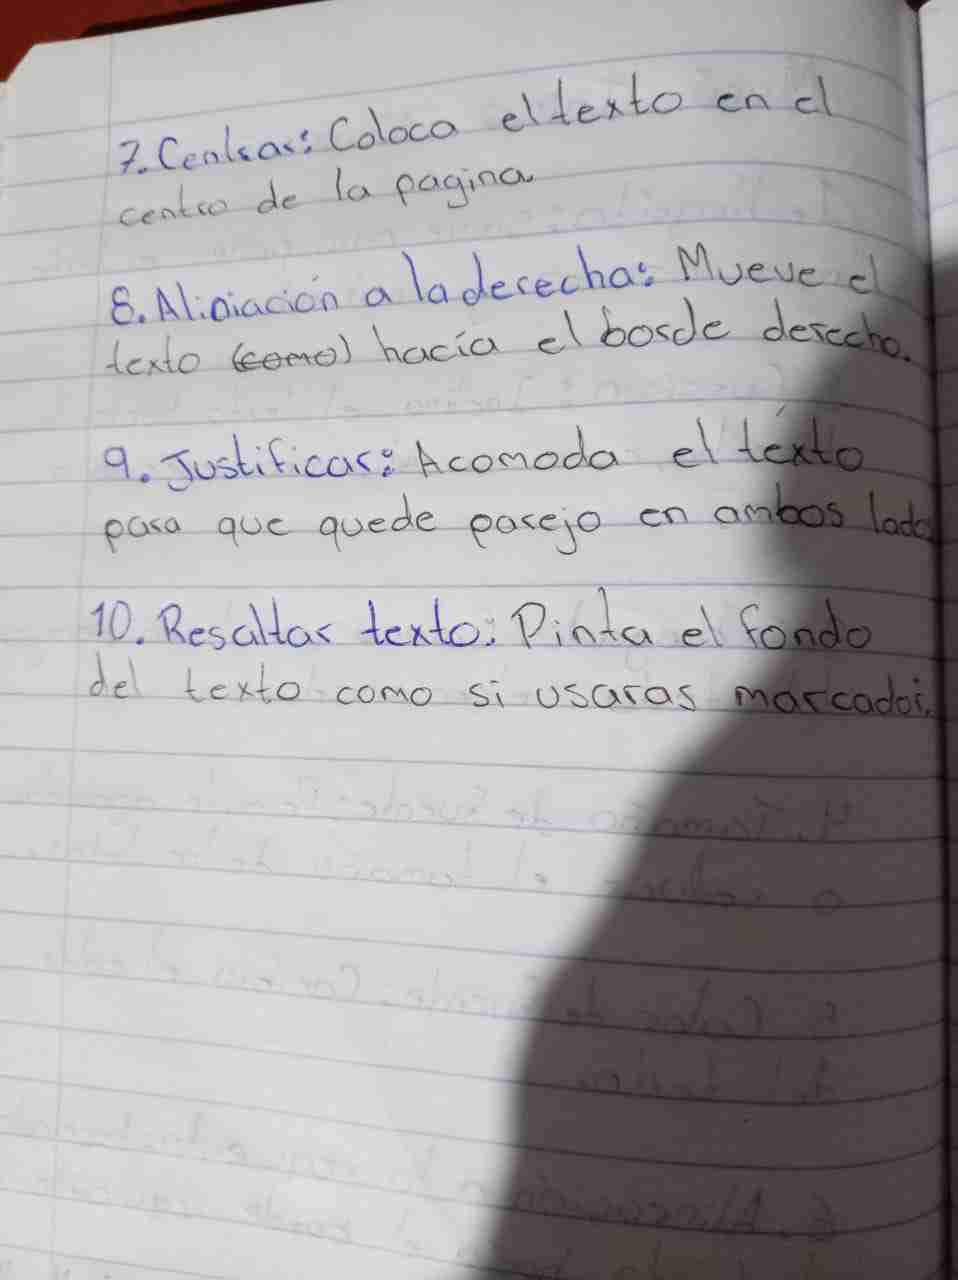 7. Centrar: Coloca el texto en el
centro de la pagina
8. Aliniación a la derecha: Mueve el
texto (como) hacía el borde derecho.
9. Justificar: Acomoda el téxto
para que quede parejo en ambos lado
10. Resaltar texto: Pinta el fondo
del texto como si usaras marcador.